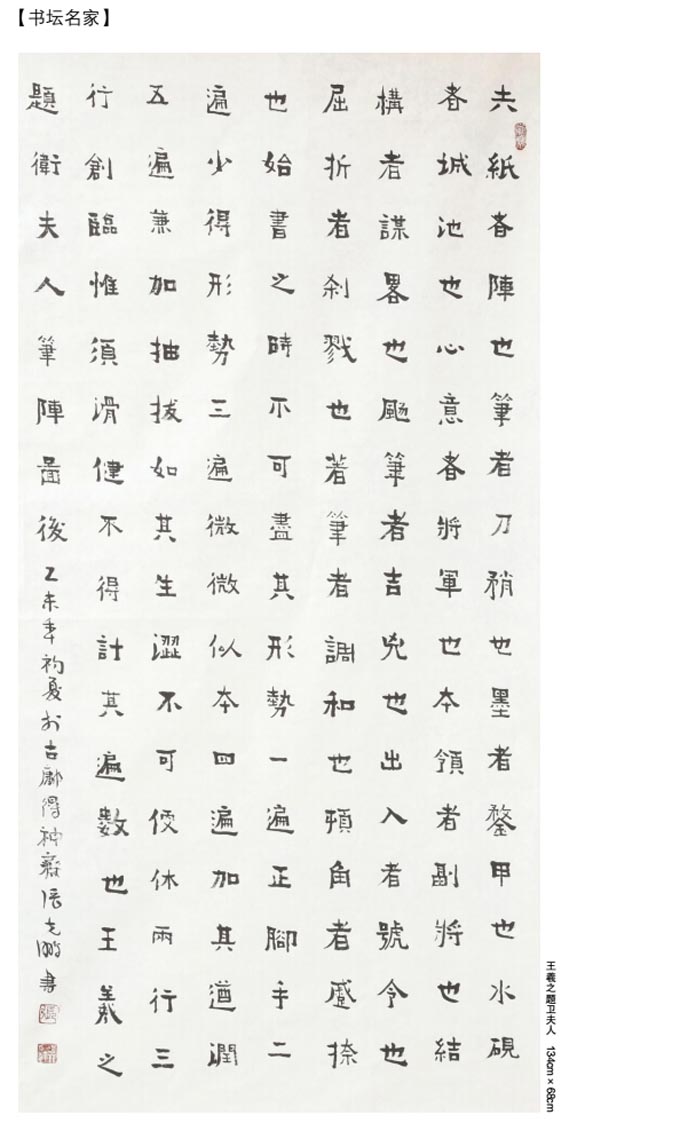 【书坛名家】
夫紙者陣也筆者刀矟也墨者鍪甲也水硯
者城池也心意者將軍也本領者副將也結
構者謀畧也颺筆者吉兇也出入者號令也
屈折者刹戮也著筆者調和也頓角者蹙捺
也始書之時不可盡其形勢一遍正腳手二
遍少得形勢三遍微微似本四遍加其遒潤
五遍兼加抽拔如其生澀不可便休兩行三
行創臨惟須滑健不得計其遍數也王羲之
題衛夫人筆陣啚後
乙未年初夏於古得神齋張克書
王羲之题卫夫人 134cm×68cm